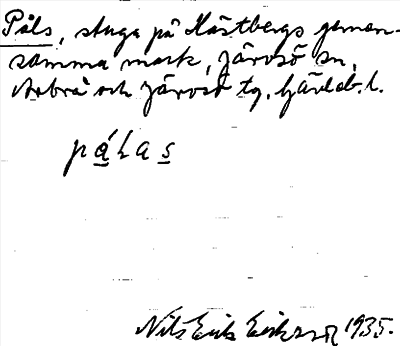 Påls, stuga på Kåstbergs gemen-
samma mark, Järvsö sn,
Arbrå och Järvsö tg, Gävleb. l.
pálas
Nils Erik Eriksson 1935.